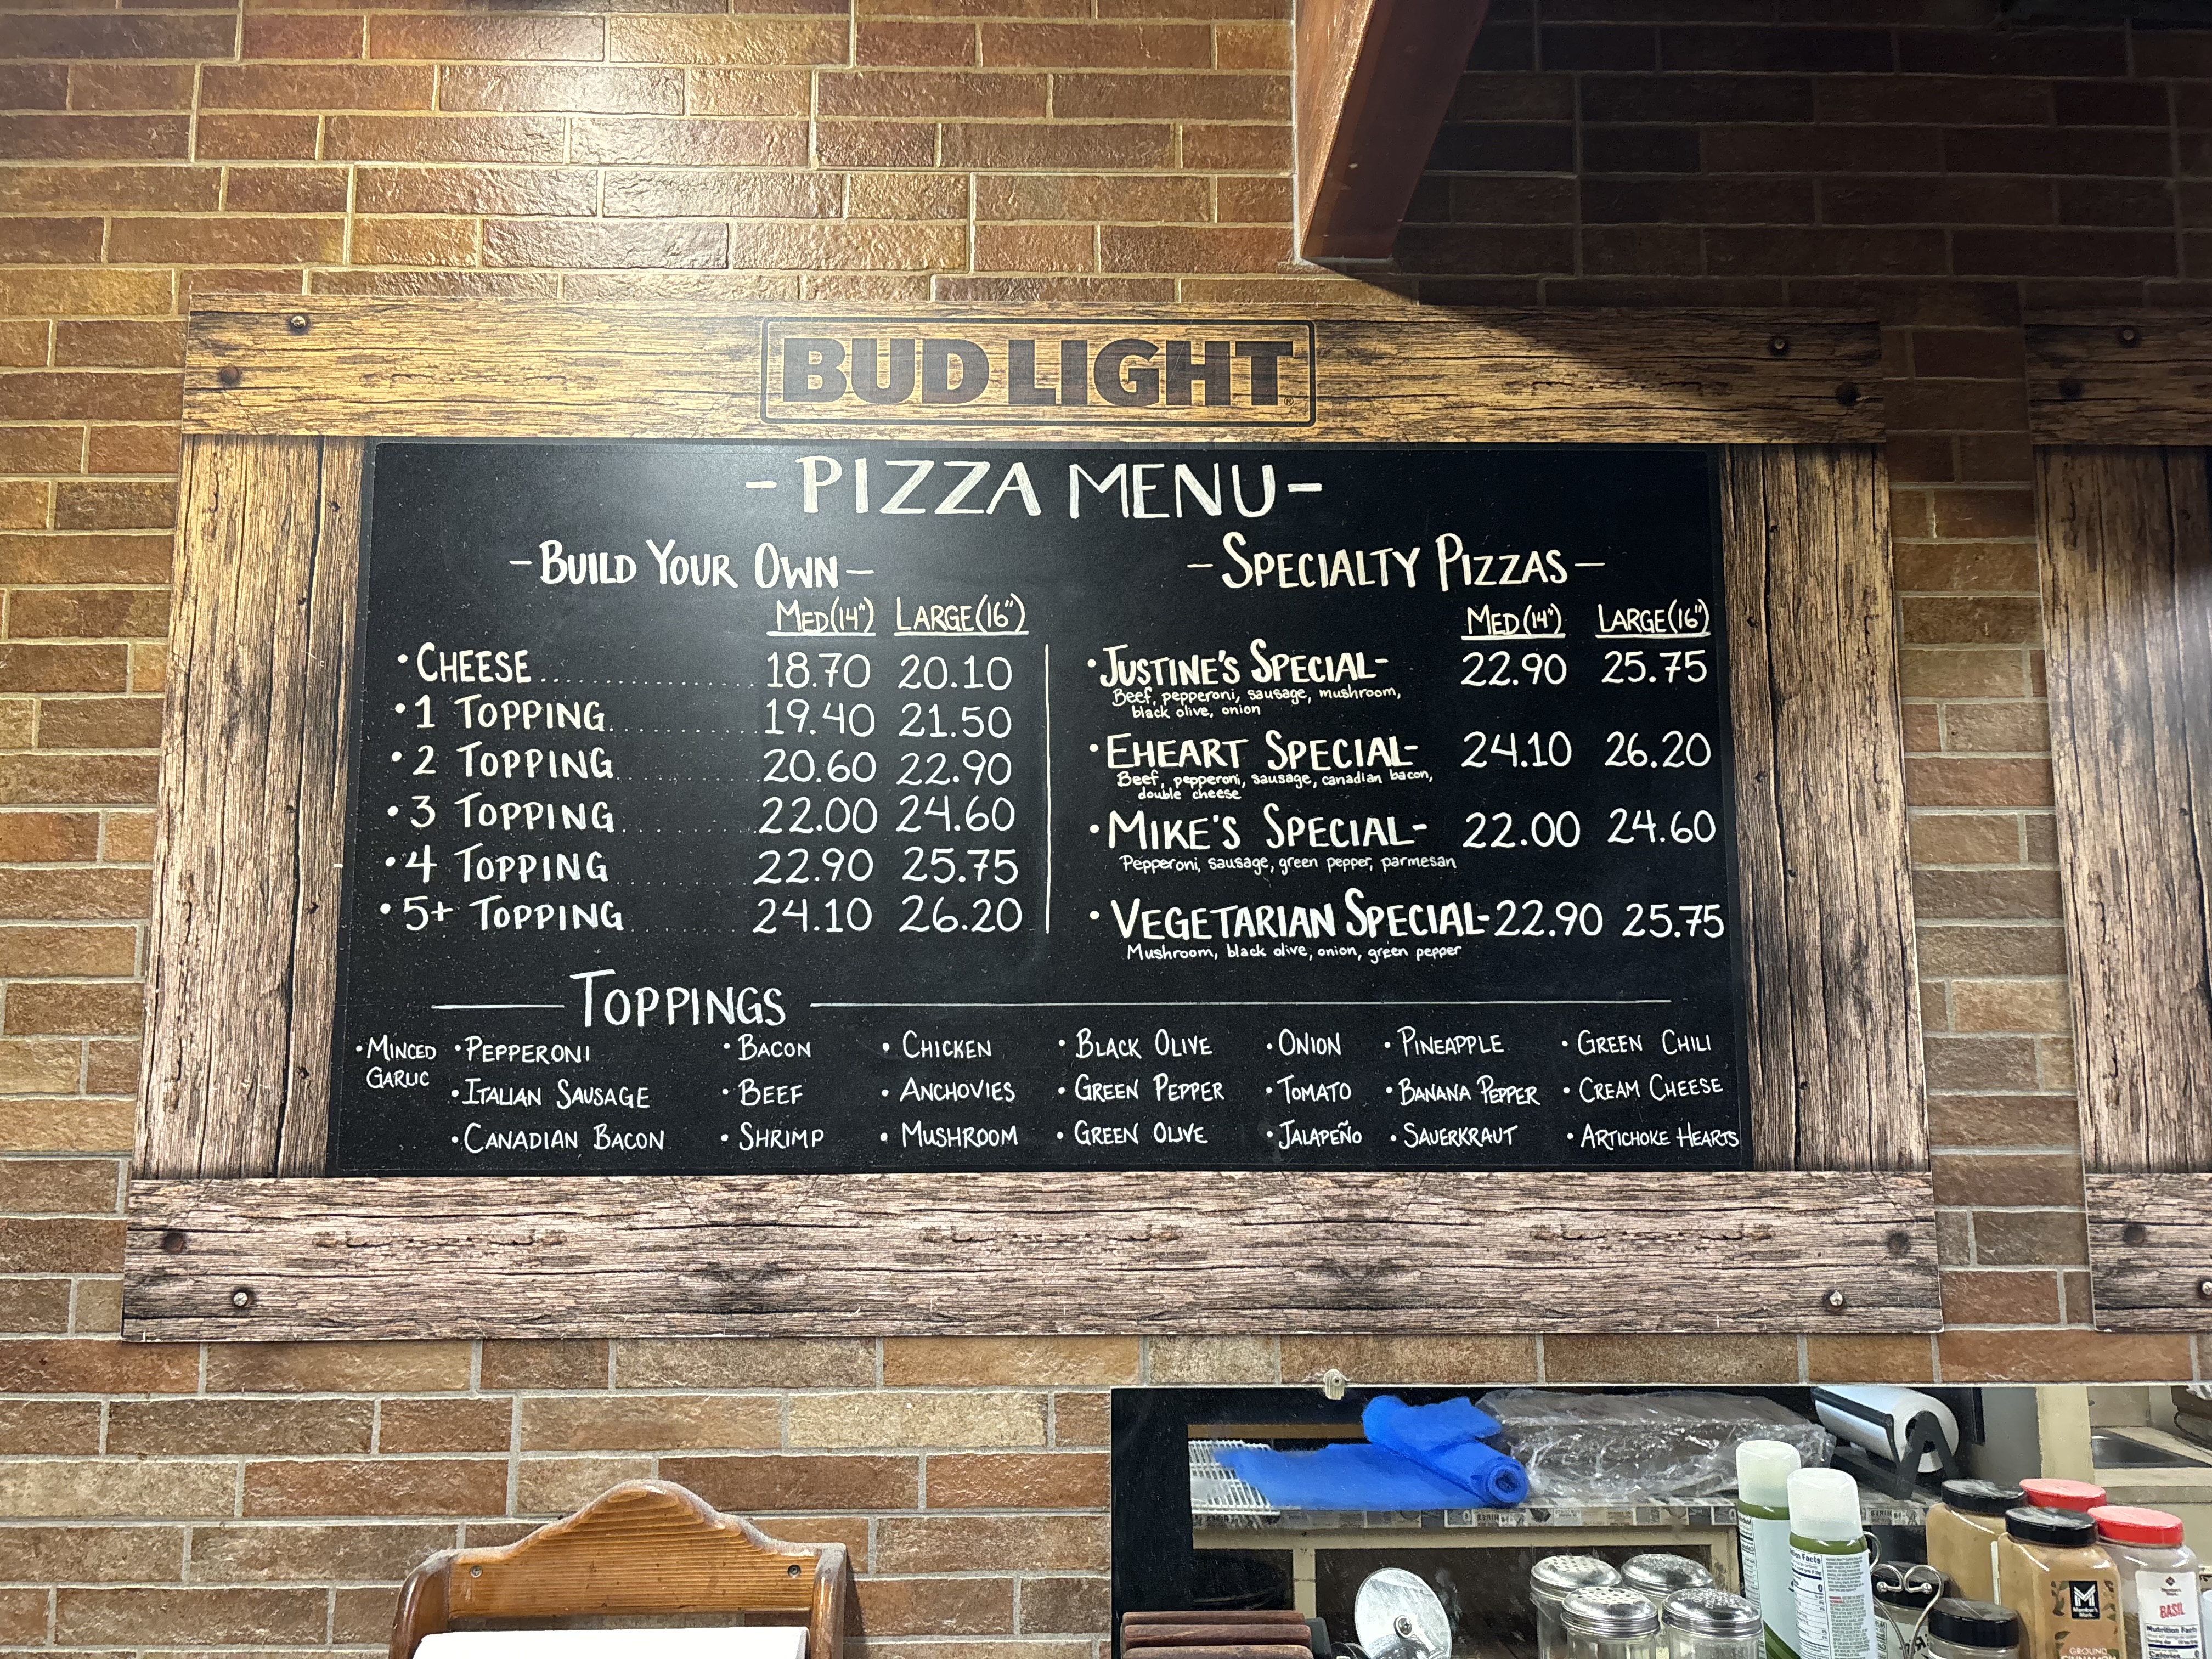 BUD LIGHT®
-PIZZA MENU-
-BUILD YOUR OWN-
MED(14") LARGE(16")
•CHEESE.................. 18.70 20.10
•1 TOPPING............ 19.40 21.50
•2 TOPPING............ 20.60 22.90
•3 TOPPING............ 22.00 24.60
•4 TOPPING............ 22.90 25.75
•5+ TOPPING............ 24.10 26.20
-SPECIALTY PIZZAS-
MED(14") LARGE(16")
•JUSTINE'S SPECIAL- 22.90 25.75
Beef, pepperoni, sausage, mushroom,
black olive, onion
•EHEART SPECIAL- 24.10 26.20
Beef, pepperoni, sausage, canadian bacon,
double cheese
•MIKE'S SPECIAL- 22.00 24.60
Pepperoni, sausage, green pepper, parmesan
•VEGETARIAN SPECIAL- 22.90 25.75
Mushroom, black olive, onion, green pepper
TOPPINGS
•MINCED GARLIC
•PEPPERONI •BACON •CHICKEN •BLACK OLIVE •ONION •PINEAPPLE •GREEN CHILI
•ITALIAN SAUSAGE •BEEF •ANCHOVIES •GREEN PEPPER •TOMATO •BANANA PEPPER •CREAM CHEESE
•CANADIAN BACON •SHRIMP •MUSHROOM •GREEN OLIVE •JALAPEÑO •SAUERKRAUT •ARTICHOKE HEARTS
Nutrition Facts
M
Member's
Mark
GROUND
CINNAMON
BASIL
Nutrition Facts
Calories